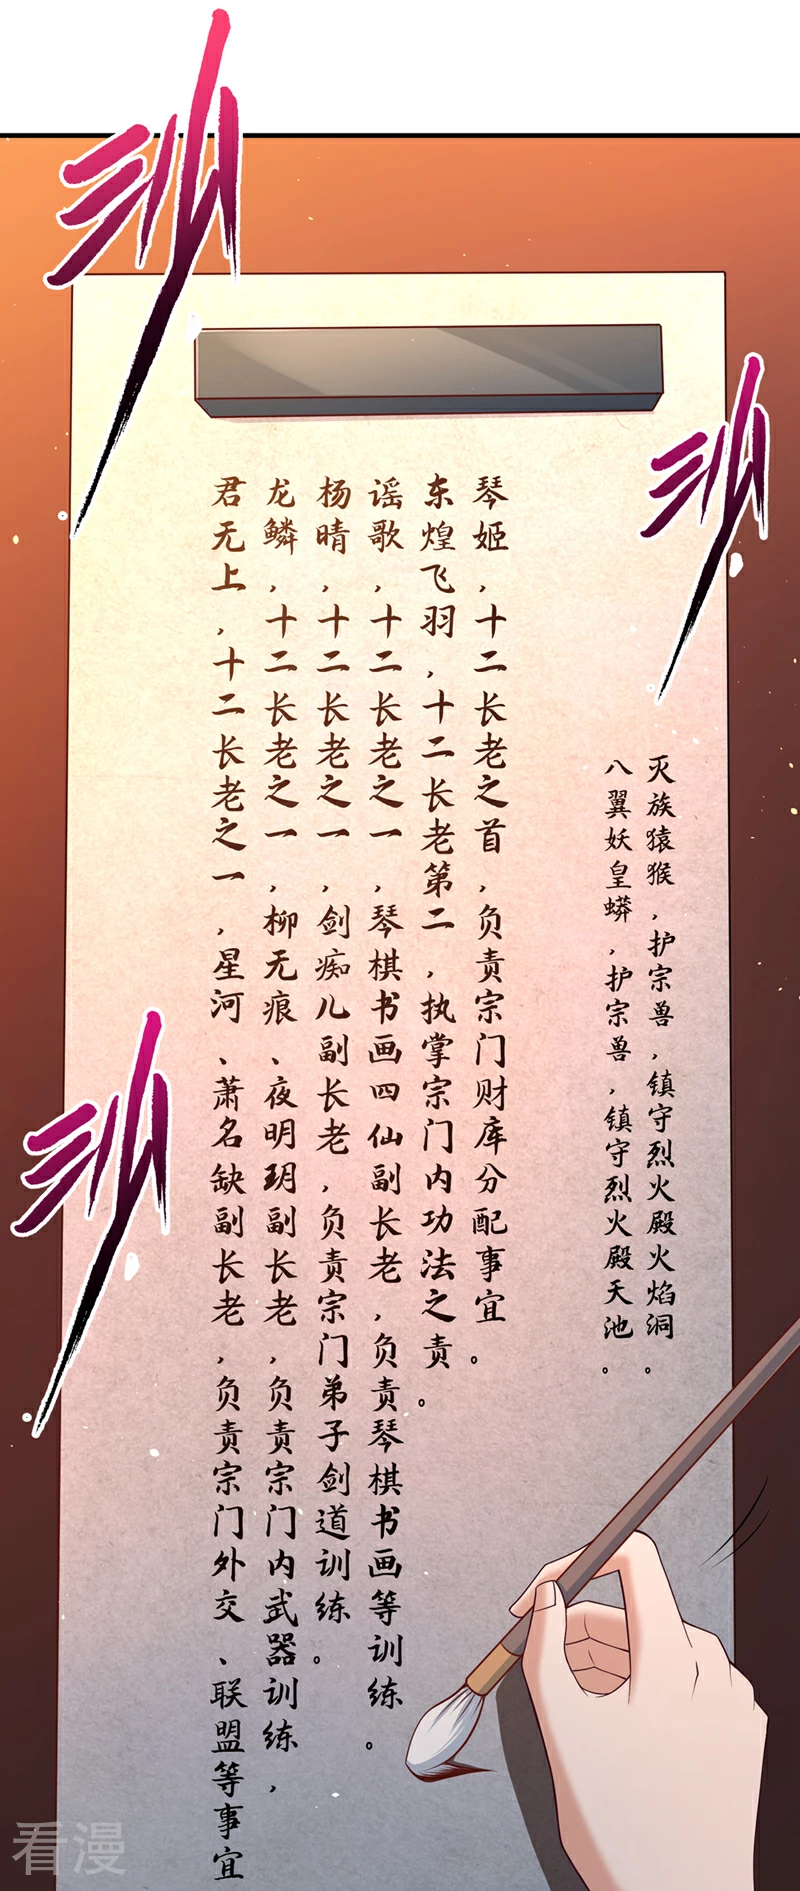 灭族猿猴，护宗兽，镇守烈火殿火焰洞。
八翼妖皇蟒，护宗兽，镇守烈火殿天池。
琴姬，十二长老之首，负责宗门财库分配事宜。
东煌飞羽，十二长老第二，执掌宗门内功法之责。
谣歌，十二长老之一，琴棋书画四仙副长老，负责琴棋书画等训练。
杨晴，十二长老之一，剑痴儿副长老，负责宗门弟子剑道训练。
龙鳞，十二长老之一，柳无痕、夜明玥副长老，负责宗门内武器训练，
君无上，十二长老之一，星河、萧名缺副长老，负责宗门外交、联盟等事宜
看漫